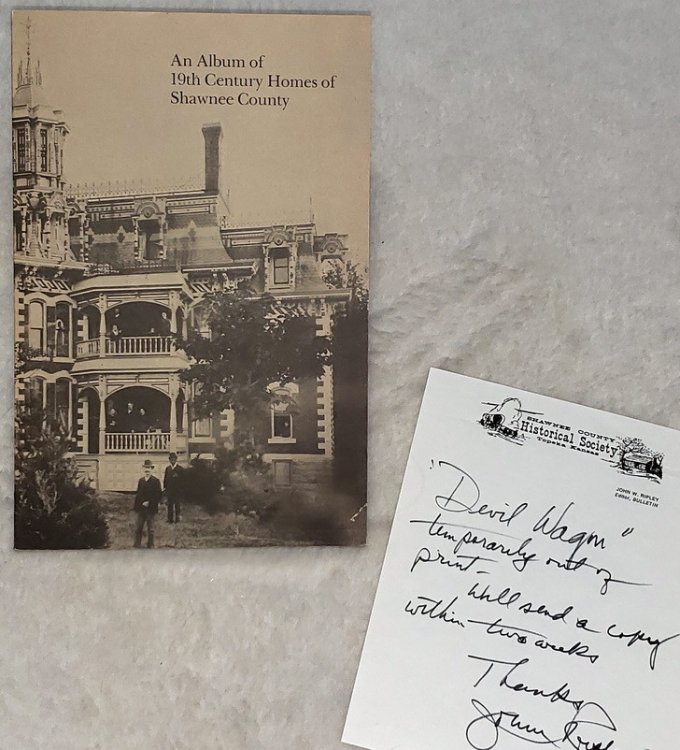 An Album of
19th Century Homes of
Shawnee County
SHAWNEE COUNTY
Historical Society
Topeka Kansas
JOHN W. RIPLEY
Editor, BULLETIN
"Devil Wagon"
temporarily out of
print -
Will send a copy
within two weeks
Thanks
John